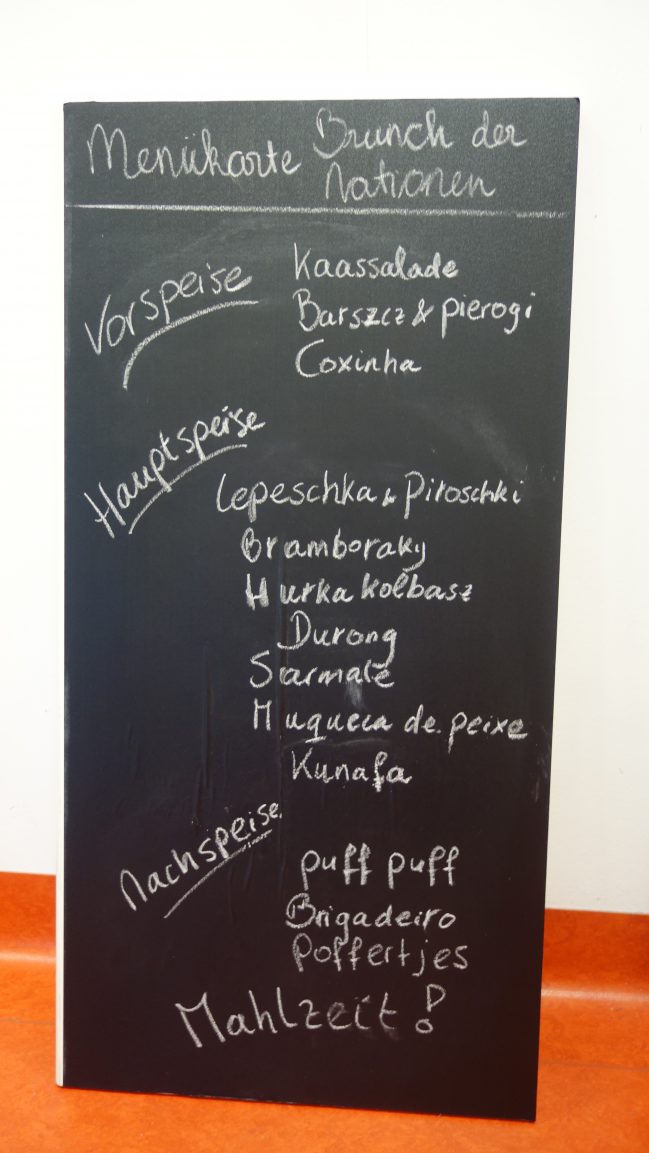 Menükarte Brunch der
Nationen
Vorspeise
Kaassalade
Barszcz & pierogi
Coxinha
Hauptspeise
Lepeschka & Piroschki
Bramboraky
Hurka kolbasz
Durong
Sarmale
Muqueca de peixe
Kunafa
Nachspeise
puff puff
Brigadeiro
Poffertjes
Mahlzeit!